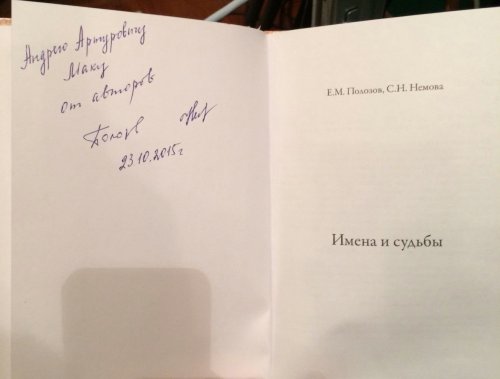 Андрею Артуровичу
Маку
от авторов
23.10.2015г
Е.М. Полозов, С.Н. Немова
Имена и судьбы